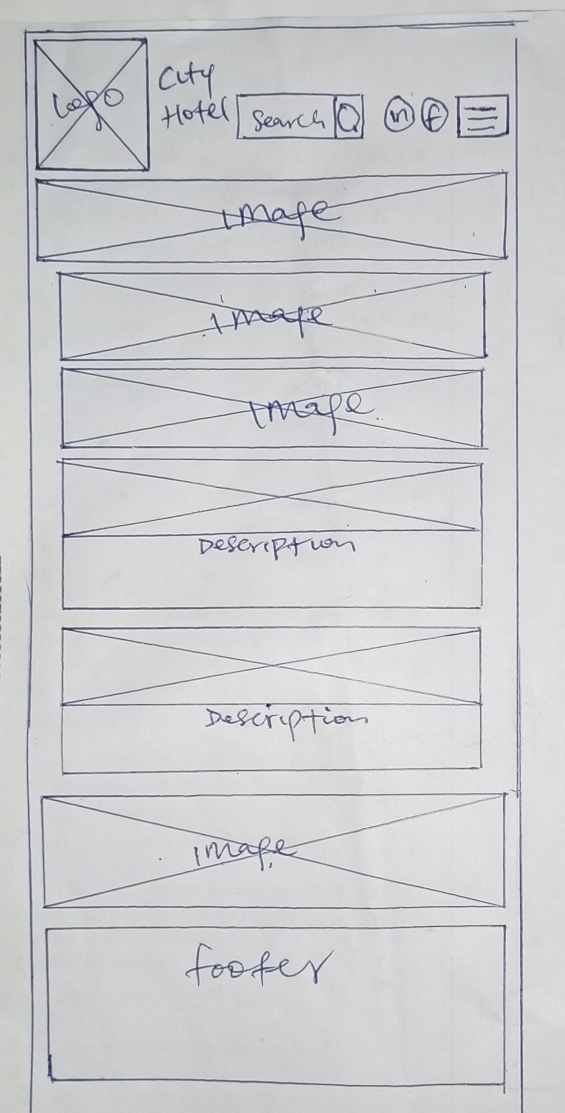 Logo
City
Hotel
Search
in f
image
image
image
Description
Description
image
footer